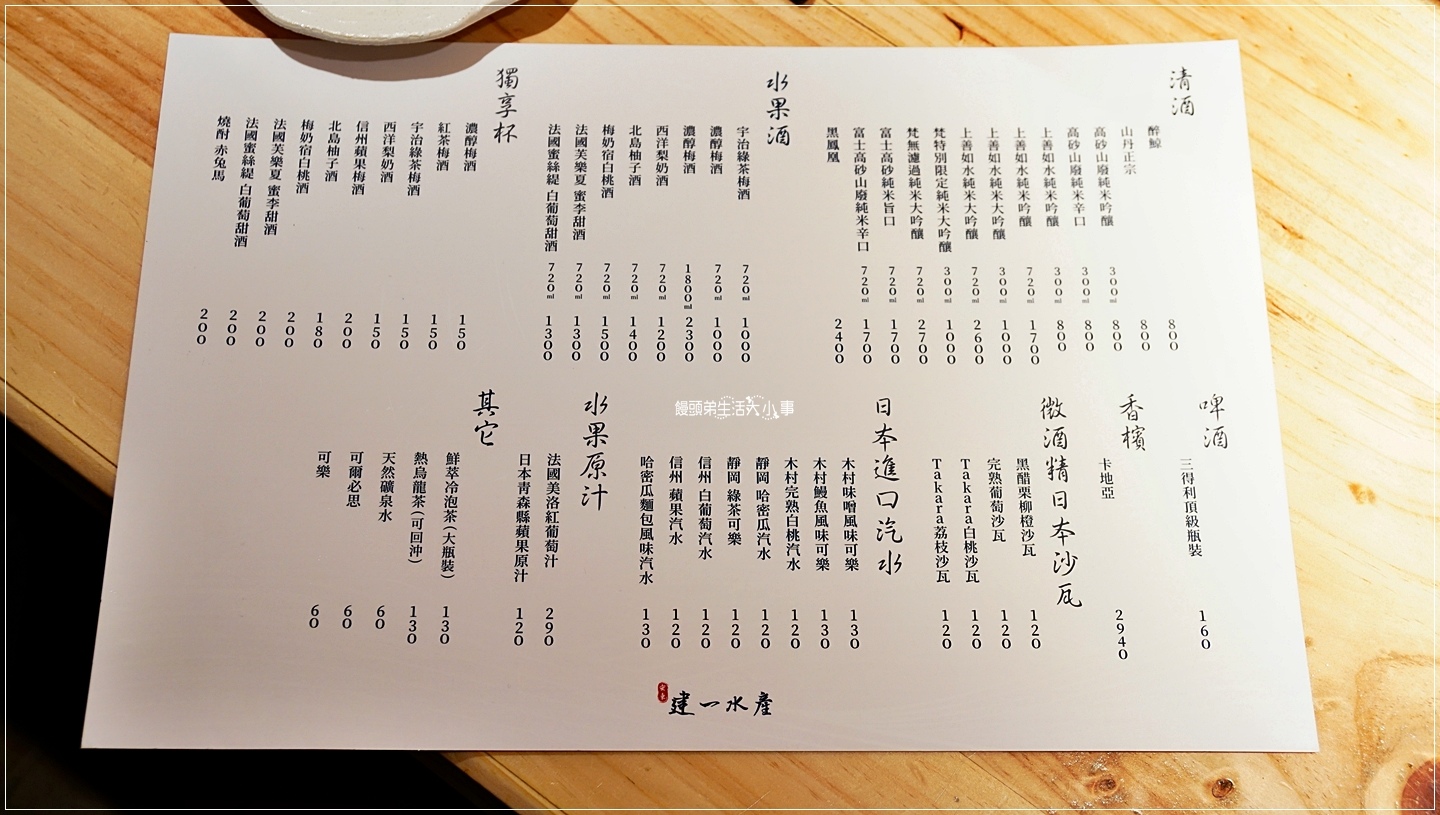 清酒
醉鯨 800
山丹正宗 800
高砂山廢純米吟釀 300ml 800
高砂山廢純米辛口 300ml 800
上善如水純米吟釀 300ml 800
上善如水純米吟釀 720ml 1700
上善如水純米大吟釀 300ml 1000
上善如水純米大吟釀 720ml 2600
梵特別限定純米大吟釀 300ml 1000
梵無濾過純米大吟釀 720ml 2700
富士高砂純米旨口 720ml 1700
富士高砂山廢純米辛口 720ml 1700
黑鳳凰 2400
水果酒
宇治綠茶梅酒 720ml 1000
濃醇梅酒 720ml 1000
濃醇梅酒 1800ml 2300
西洋梨奶酒 720ml 1200
北島柚子酒 720ml 1400
梅奶宿白桃酒 720ml 1500
法國芙樂夏 蜜李甜酒 720ml 1300
法國蜜絲緹 白葡萄甜酒 720ml 1300
獨享杯
濃醇梅酒 150
紅茶梅酒 150
宇治綠茶梅酒 150
西洋梨奶酒 150
信州蘋果梅酒 200
北島柚子酒 180
梅奶宿白桃酒 200
法國芙樂夏 蜜李甜酒 200
法國蜜絲緹 白葡萄甜酒 200
燒酎 赤兔馬 200
啤酒
三得利頂級瓶裝 160
香檳
卡地亞 2940
微酒精日本沙瓦
黑醋栗柳橙沙瓦 120
完熟葡萄沙瓦 120
Takara白桃沙瓦 120
Takara荔枝沙瓦 120
日本進口汽水
木村味噌風味可樂 130
木村鰻魚風味可樂 130
木村完熟白桃汽水 120
靜岡 哈密瓜汽水 120
靜岡 綠茶可樂 120
信州 白葡萄汽水 120
信州 蘋果汽水 120
哈密瓜麵包風味汽水 130
水果原汁
法國美洛紅葡萄汁 290
日本青森縣蘋果原汁 120
其它
鮮萃冷泡茶(大瓶裝) 130
熱烏龍茶(可回沖) 130
天然礦泉水 60
可爾必思 60
可樂 60
建一水產
饅頭弟生活大小事